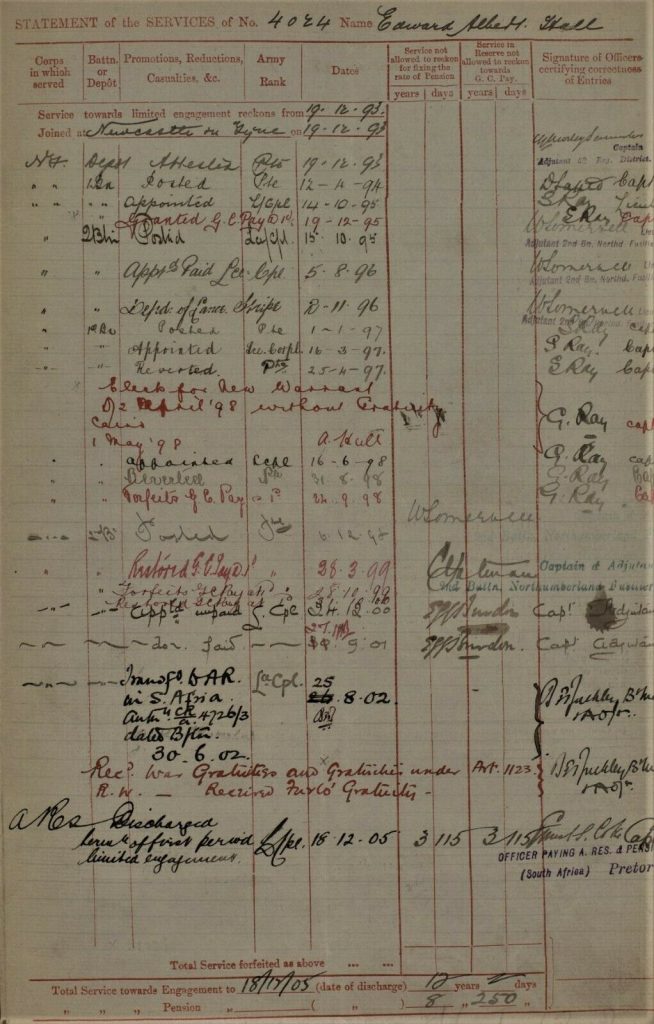 STATEMENT of the SERVICES of No. 4024 Name Edward Albert Hall
Corps in which served
Battn. or Depôt
Promotions, Reductions, Casualties, &c.
Army Rank
Dates
Service not allowed to reckon for fixing the rate of Pension
years days
Service in Reserve not allowed to reckon towards G. C. Pay.
years days
Signature of Officers certifying correctness of Entries
Service towards limited engagement reckons from 19.12.93.
Joined at Newcastle on Tyne on 19.12.93
Captain
N.F. Depot Attested Pte 19-12-93 Adjutant Reg. District.
" " 1 Bn Posted Pte 12-4-94 Capt
" " " Appointed L/Cpl 14-10-95 G Ray Lieut
Granted G. C. Pay @ 1d 19-12-95 G Ray Capt
2 Btn Posted L/Cpl. 15 10.95 W Somervell
Adjutant 2nd Bn. Northd. Fusiliers
" " Apptd Paid Lce. Cpl. 5.8.96 W Somervell
Adjutant 2nd Bn. Northd. Fusil
" " Depd. of Lance Stripe 11.96 W Somervell
Adjutant 2nd Bn. Northd. Fus
" 1st Bn Posted Pte 1-1-97 G Ray capt
" " Appointed Lce. Corpl. 16-3-97. G Ray. Capt
" " Reverted. Pte 25-4-97. G Ray Capt
Elects for New Warrant
2 April '98 without Gratuity
Cairo
1 May '98 A. Hall G. Ray capt
" " appointed Lcpl 16-6-98 G. Ray cap
" " Reverted Pte 31.8.98 G. Ray
" " Forfeits G.C. Pay @ 1d 24.9.98 G. Ray
" 2d B. Posted Pte 6.12.98 W Somervell
" Restored G.C. Pay @ 1d " 28.3.99 Captain & Adjutant
2nd Battn. Northumberland Fusiliers
" Forfeits G.C. Pay at 1d 28.10.99
Restored G.C. Pay at 1d
" " Apptd unpaid L. Cpl 4.12.00 Capt Adjutant
" do. Paid 9.01 Capt Adjutan
" Transfd DAR L/Cpl. 25
in S. Africa 8.02.
Auth. CR 4726/3
dated Pta
30.6.02.
Recd. War Gratuities and Gratuities under Art. 1123.
R.W. — Received Furlo' Gratuity -
A Res Discharged
termn. of first period L/Cpl. 18.12.05 3 115 3 115
limited engagement.
OFFICER PAYING A. RES. & PENSI
(South Africa) Pretor
Total Service forfeited as above ... ...
Total Service towards Engagement to 18/12/05 (date of discharge) 12 years — days
" " Pension ( " ) 8 " 250 "